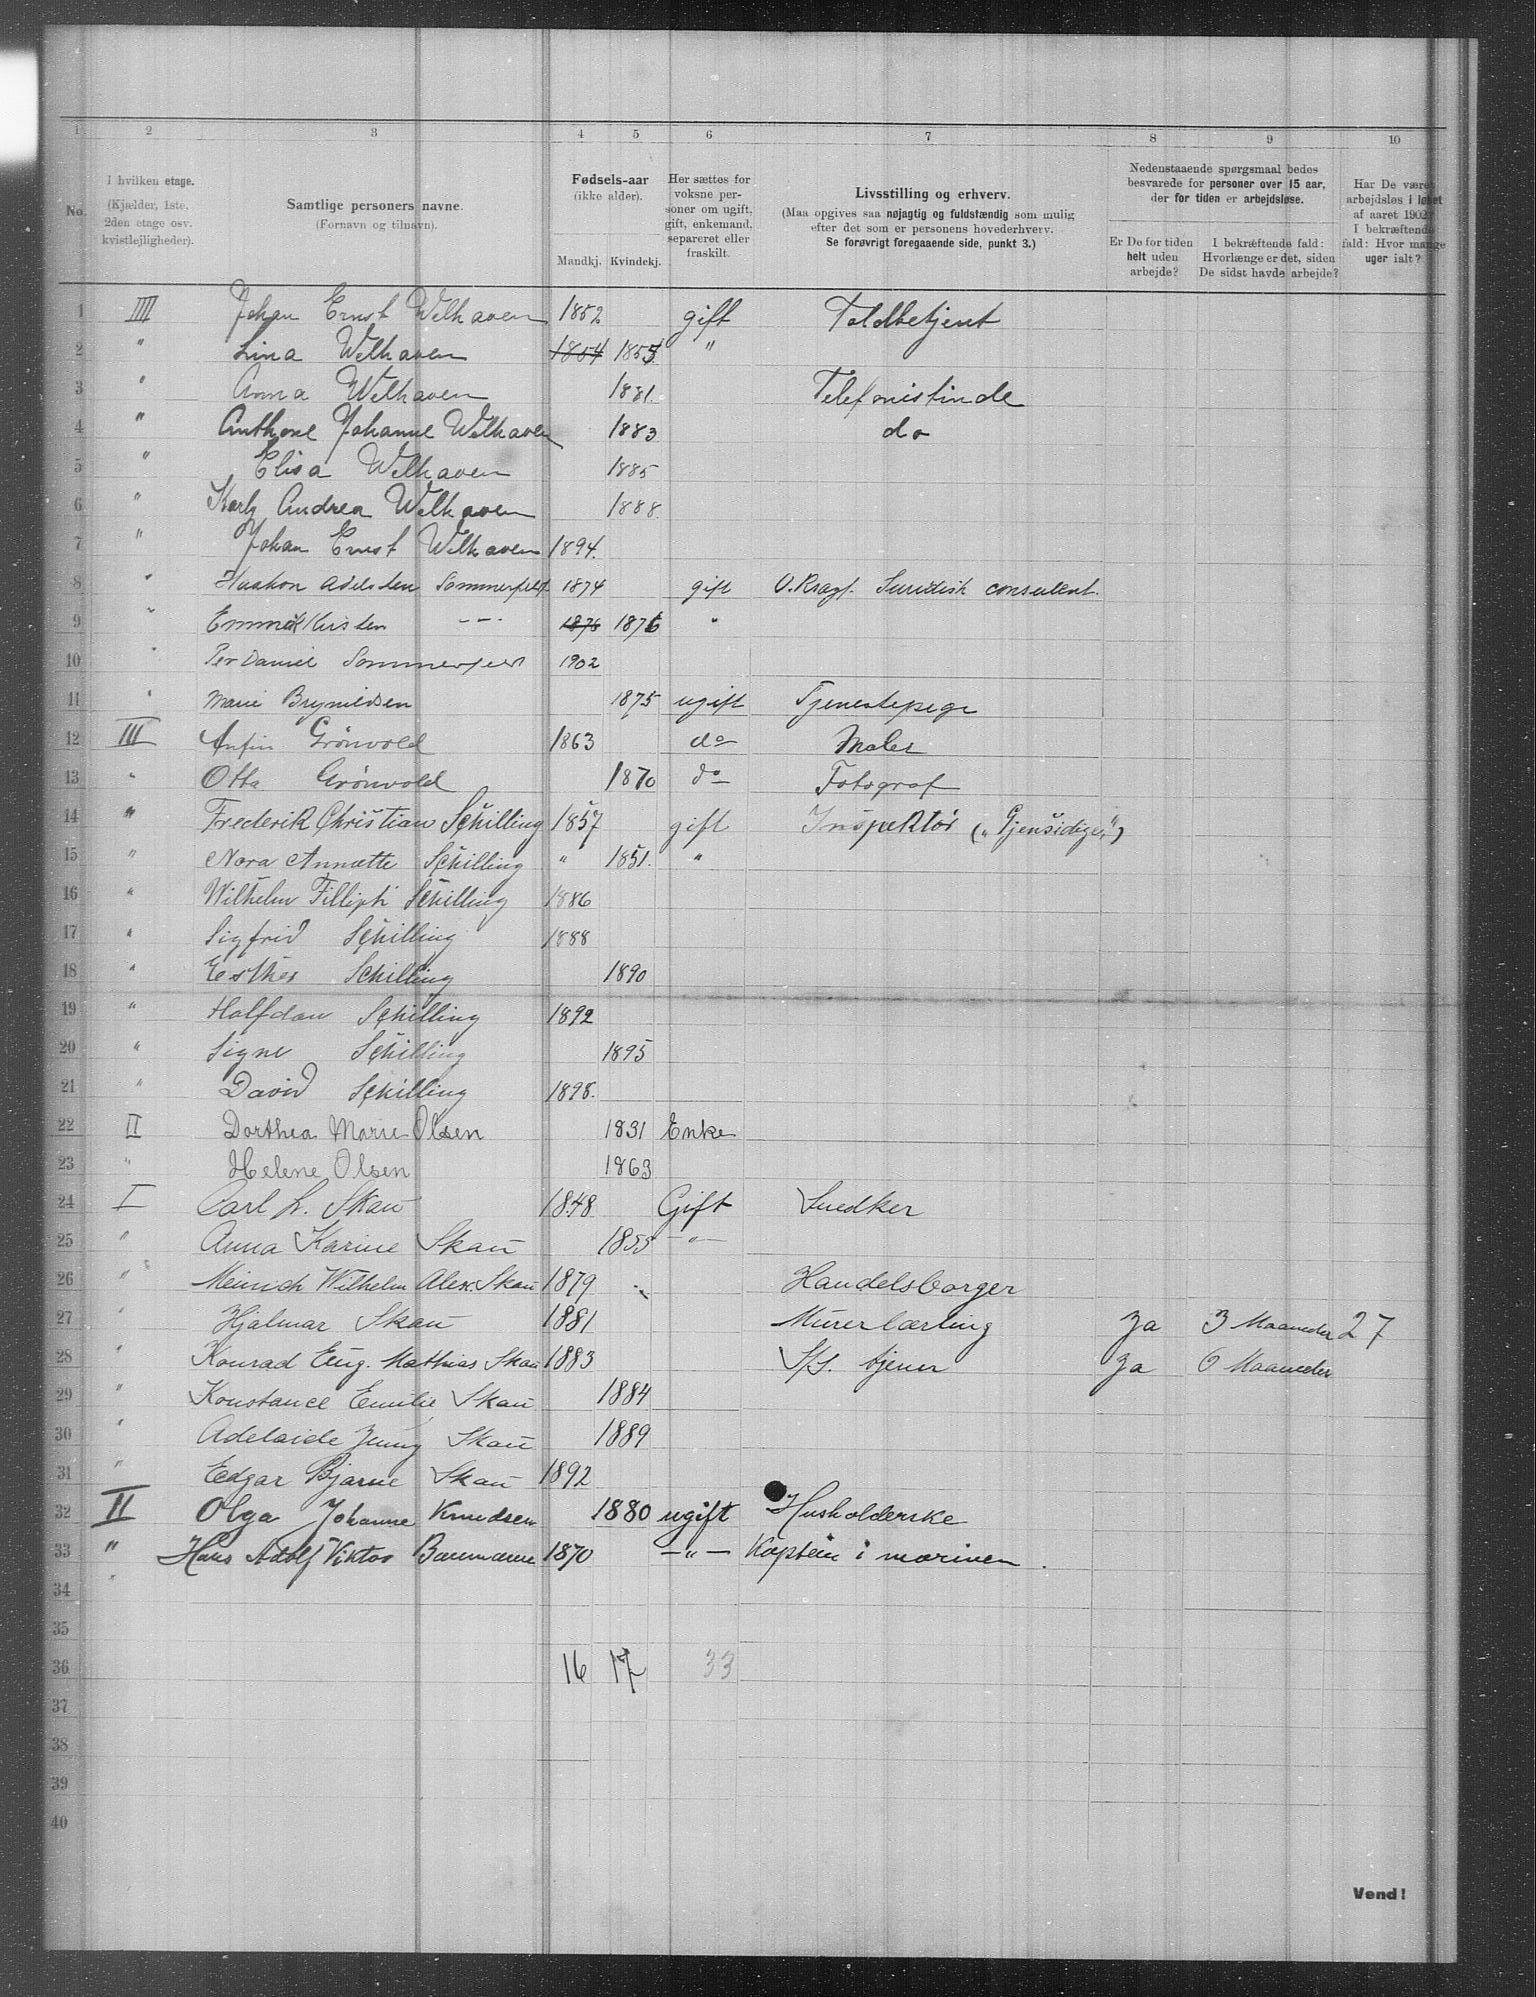 1 2 3 4 5 6 7 8 9 10
No. I hvilken etage. (Kjælder, 1ste, 2den etage osv. kvistlejligheder).
Samtlige personers navne. (Fornavn og tilnavn).
Fødsels-aar (ikke alder). Mandkj. Kvindekj.
Her sættes for voksne personer om ugift, gift, enkemand, separeret eller fraskilt.
Livsstilling og erhverv.
(Maa opgives saa nøjagtig og fuldstændig som mulig efter det som er personens hovederhverv. Se forøvrigt foregaaende side, punkt 3.)
Nedenstaaende spørgsmaal bedes besvarede for personer over 15 aar, der for tiden er arbejdsløse.
Er De for tiden helt uden arbejde?
I bekræftende fald: Hvorlænge er det, siden De sidst havde arbejde?
Har De været arbejdsløs i løbet af aaret 1902? I bekræftende fald: Hvor mange uger ialt?
1 IIII Johan Ernst Welhaven 1852 gift Toldbetjent
2 " Lina Welhaven 1854 1855 "
3 " Anna Welhaven 1881. Telefonistinde
4 " Johanne Welhaven 1883 do
5 " Elisa Welhaven 1885
6 " Andrea Welhaven 1888.
7 " Johan Ernst Welhaven 1894.
8 " Haakon Adelsten Sommerfelt 1874 gift O.Rsagf. Juridisk consulent.
9 " Kirsten —"— 1876 1876 "
10 " Per Daniel Sommerfelt 1902
11 " Marie Brynildsen 1875 ugift Tjenestepige
12 III Anfin Grönvold 1863 do Maler
13 " Otta Grönvold 1870 do Fotograf
14 " Frederik Christian Schilling 1857 gift Inspektör („Gjensidige")
15 " Nora Annette Schilling " 1851. "
16 " Wilhelm Filliph Schilling 1886
17 " Sigfrid Schilling 1888
18 " Esther Schilling 1890
19 " Halfdan Schilling 1892
20 " Signe Schilling 1895
21 " David Schilling 1898.
22 II Dorthea Marie Olsen 1831 Enke
23 " Helene Olsen 1863
24 I Carl L. Skau 1848 Gift Snedker
25 " Anna Karine Skau 1855 —"—
26 " Heinrich Wilhelm Alex. Skau 1879 Handelsborger
27 " Hjalmar Skau 1881 Murerlærling Ja 3 Maaneder 27
28 " Konrad Eug. Mathias Skau 1883 tjener Ja 6 Maaneder
29 " Konstance Emilie Skau 1884
30 " Adelaide Jenny Skau 1889
31 " Edgar Bjarne Skau 1892
32 II Olga Johanne Knudsen 1880 ugift Husholderske
33 " Hans Adolf Viktor 1870 —"— Kaptein i marinen.
34 "
35
36 16 17 33
37
38
39
40
Vend!